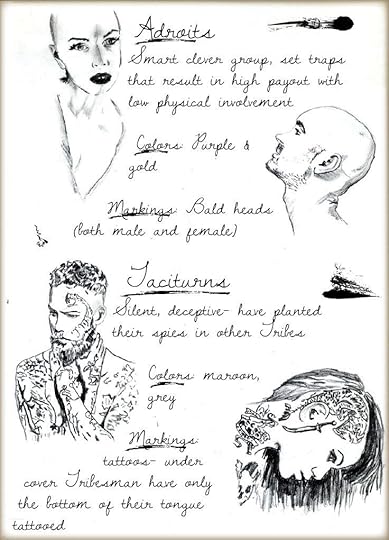 Adroits
Smart clever group, set traps
that result in high payout with
low physical involvement
Colors: Purple &
gold
Markings: Bald heads
(both male and female)
Taciturns
Silent, deceptive- have planted
their spies in other Tribes
Colors: maroon,
grey
Markings:
tattoos- under
cover Tribesman have only
the bottom of their tongue
tattooed